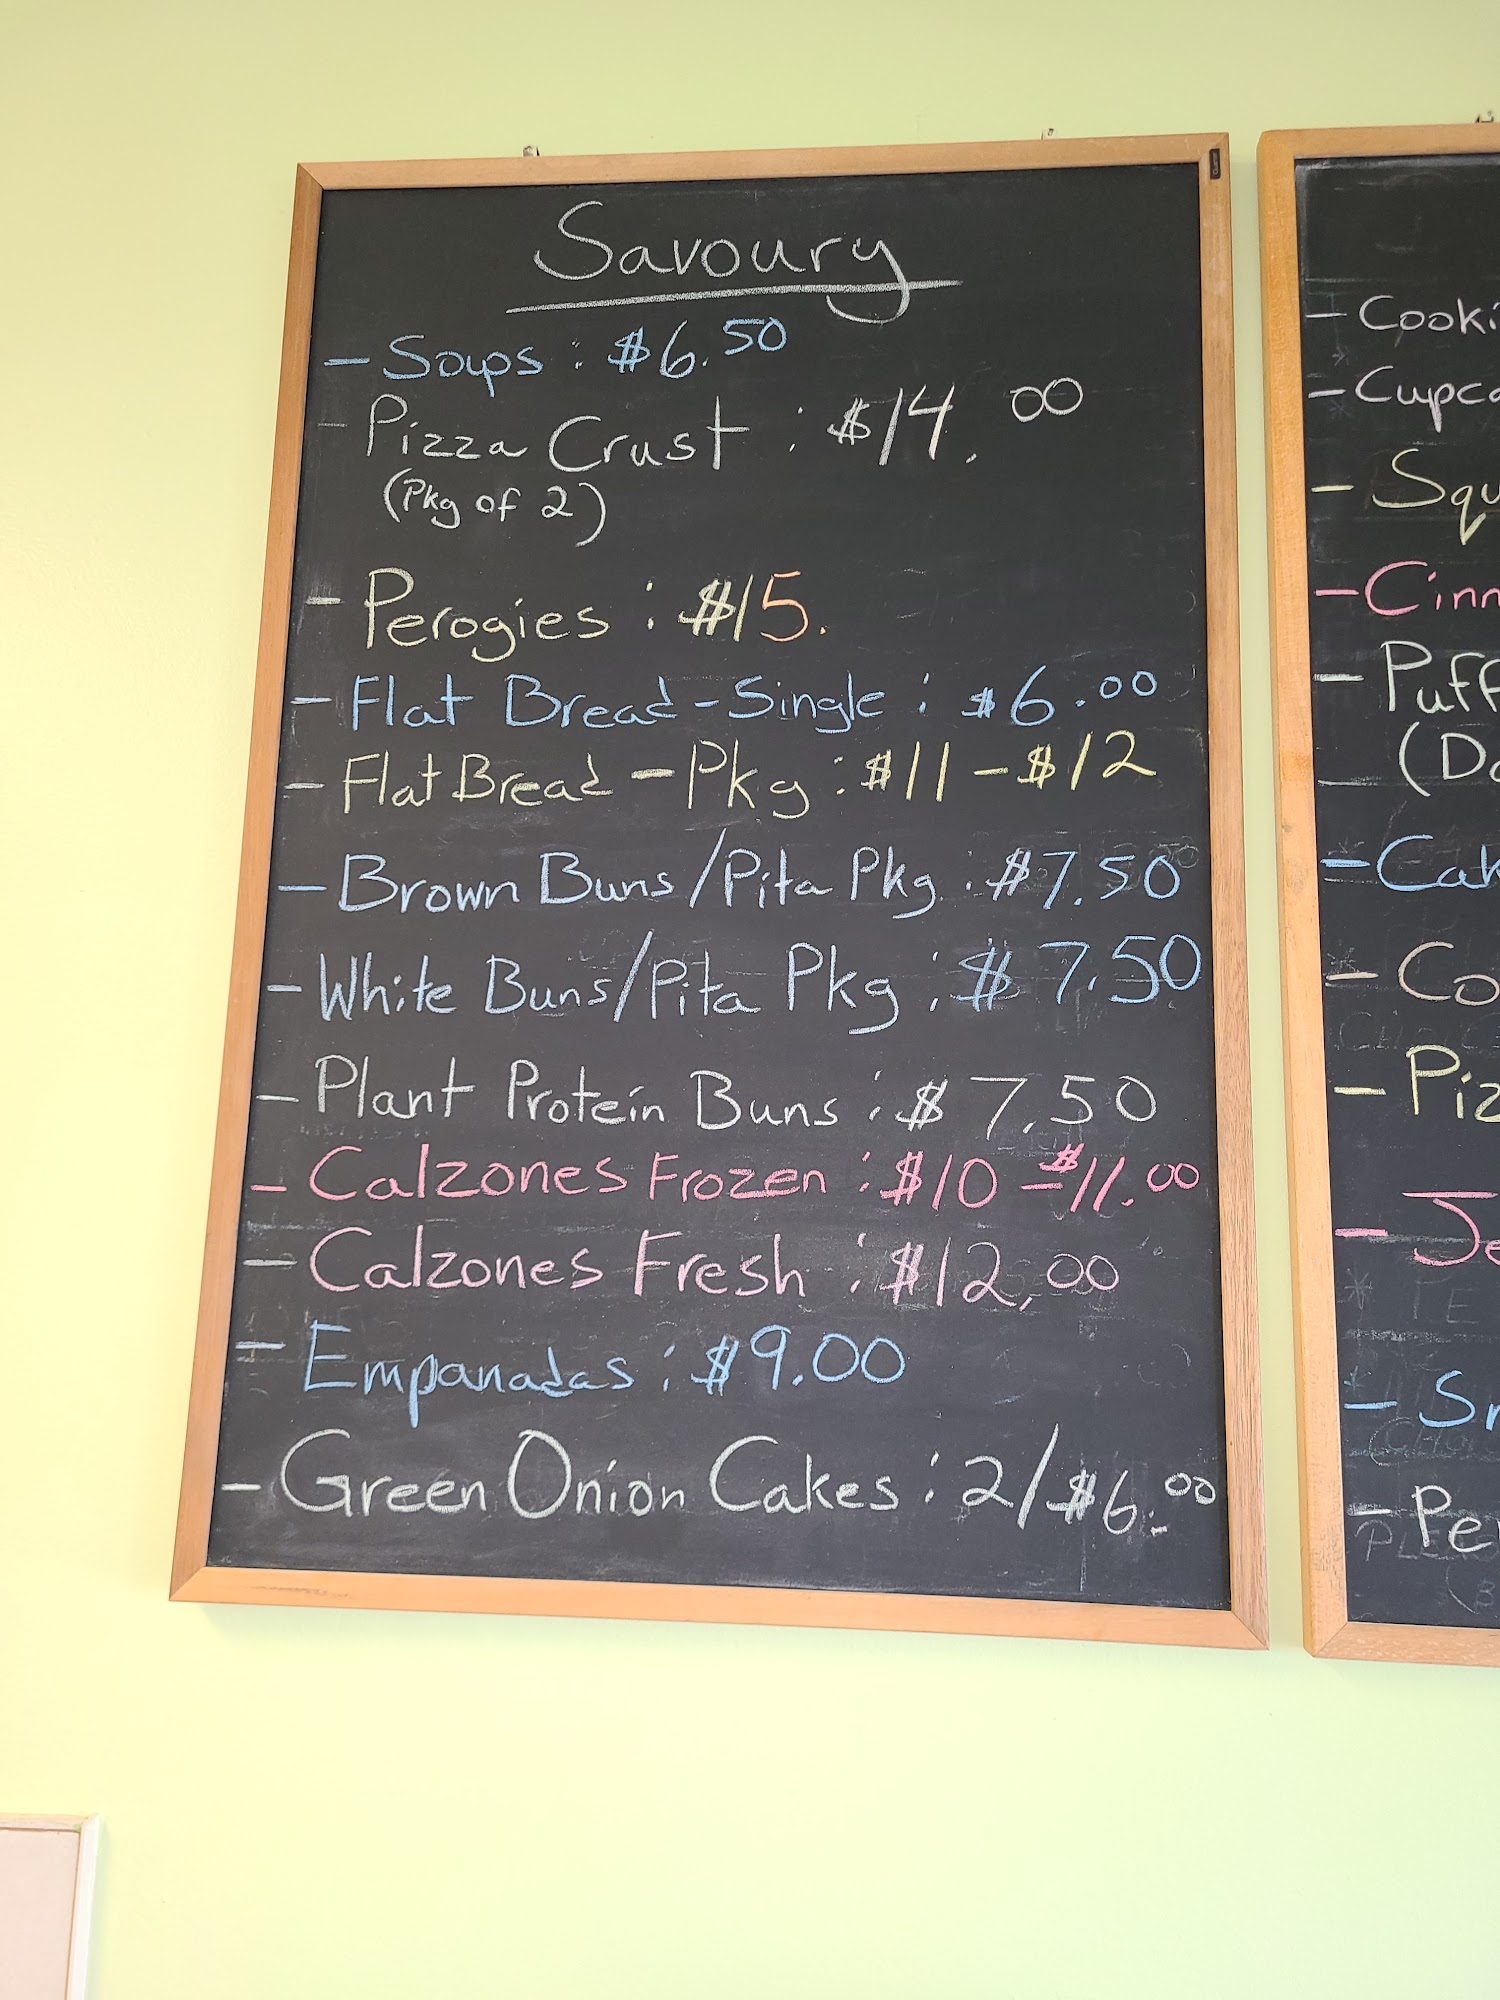 Savoury
- Soups : $6.50
- Pizza Crust : $14.00
(Pkg of 2)
- Perogies : $15.
- Flat Bread - Single : $6.00
- Flat Bread - Pkg : $11 - $12
- Brown Buns / Pita Pkg : $7.50
- White Buns / Pita Pkg : $7.50
- Plant Protein Buns : $7.50
- Calzones Frozen : $10 - $11.00
- Calzones Fresh : $12.00
- Empanadas : $9.00
- Green Onion Cakes : 2/$6.00
- Cooki
- Cupca
- Squ
- Cinn
- Puff
(Do
- Cak
- Co
- Piz
- Je
- Sn
- Pe